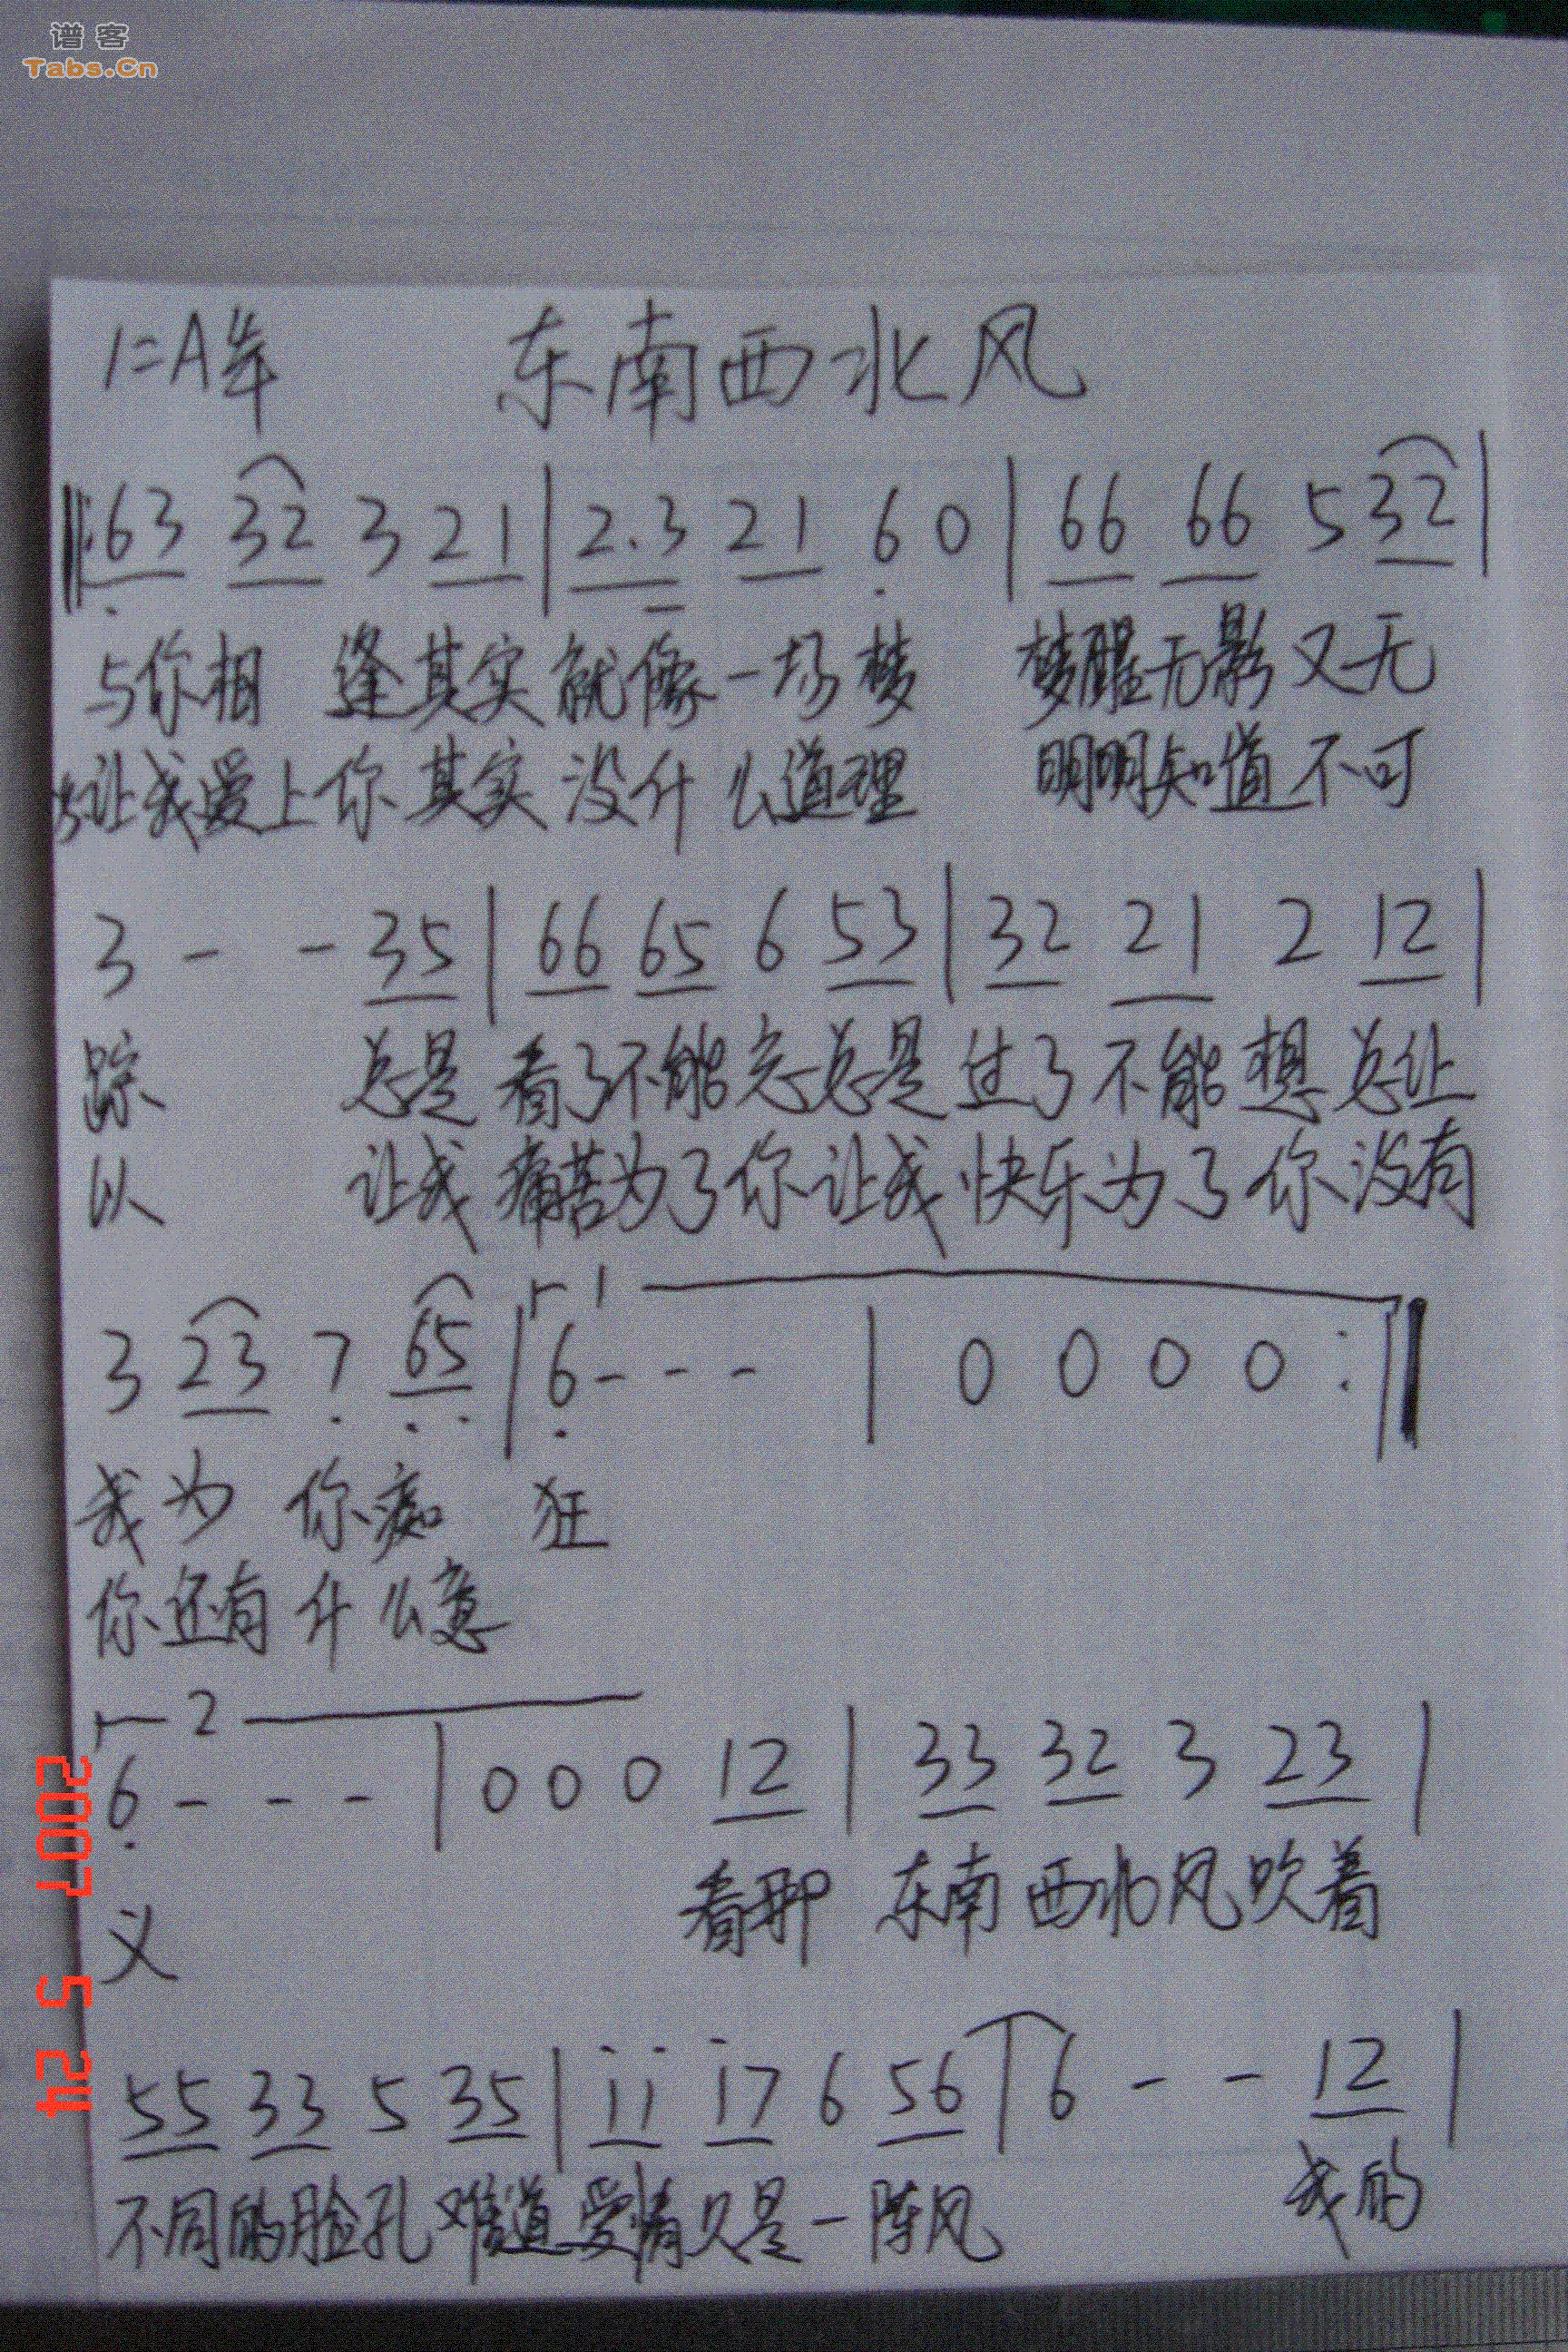 谱客
Tabs.Cn
1=A 4/4 东南西北风
‖: 63 32 3 21 | 2.3 21 6 0 | 66 66 5 32 |
与你相 逢其实就像一场梦 梦醒无影又无
让我爱上你其实没什么道理 明明知道不可
3 - - 35 | 66 65 6 53 | 32 21 2 12 |
踪 总是看了不能忘总是过了不能想总让
以 让我痛苦为了你让我快乐为了你没有
3 23 7 65 | 6 - - - | 0 0 0 0 :‖
1
我为 你痴 狂
你还有什么意
2
6 - - - | 0 0 0 12 | 33 32 3 23 |
看那 东南西北风吹着
义
55 33 5 35 | 11 17 6 56 | 6 - - 12 |
不同的脸孔难道爱情只是一阵风 我的
2007 5 24